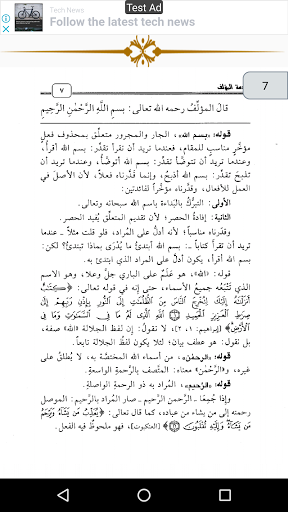 Tech News
Test Ad
Follow the latest tech news
٧
مة المؤلف
7
قالَ المؤلِّفُ رحمه الله تعالى: بسمِ اللَّهِ الرَّحْمٰنِ الرَّحِيمِ
قوله: «بسم الله»، الجار والمجرور متعلّق بمحذوف فعلٍ
مؤخَّرٍ مناسبٍ للمقام، فعندما تريد أن تقرأ نقدِّر: بسم الله أقرأ،
وعندما تريد أن تتوضَّأ تقدِّر: بسم الله أتوضَّأ، وعندما تريد أن
تذبحَ تقدِّر: بسم الله أذبحُ، وإنما قدَّرناه فعلاً، لأن الأصل في
العمل للأفعال، وقدَّرناه مؤخَّراً لفائدتين:
الأولى: التبرُّك بالبَداءة باسم الله سبحانه وتعالى.
الثانية: إفادةُ الحصر؛ لأن تقديم المتعلَّق يُفيد الحصر.
وقدَّرناه مناسباً؛ لأنه أدلُّ على المراد، فلو قلت مثلاً ـ عندما
تريد أن تقرأ كتاباً ـ: بسم الله أبتدئ، ما يُدْرَى بماذا تبتدئ؟ لكن:
بسم الله أقرأ، يكون أدلَّ على المراد الذي ابتدئ به.
قوله: «الله»، هو عَلَمٌ على الباري جلَّ وعلا، وهو الاسم
الذي تَتْبَعُه جميعُ الأسماء، حتى إنه في قوله تعالى: ﴿كِتَٰبٌ
أَنزَلْنَٰهُ إِلَيْكَ لِتُخْرِجَ ٱلنَّاسَ مِنَ ٱلظُّلُمَٰتِ إِلَى ٱلنُّورِ بِإِذْنِ رَبِّهِمْ إِلَىٰ
صِرَٰطِ ٱلْعَزِيزِ ٱلْحَمِيدِ ۝ ٱللَّهِ ٱلَّذِى لَهُۥ مَا فِى ٱلسَّمَٰوَٰتِ وَمَا فِى
ٱلْأَرْضِ﴾ [إبراهيم: ١، ٢]، لا نقولُ: إن لفظ الجلالة «الله» صفة،
بل نقول: هو عطف بيان؛ لئلا يكون لفظ الجلالة تابعاً.
قوله: «الرحمٰن»، من أسماء الله المختصَّة به، لا يُطلقُ على
غيره، و«الرَّحْمٰن» معناه: المتَّصف بالرَّحمةِ الواسعة.
قوله: «الرحيم»، المراد به ذو الرحمةِ الواصلة.
وإذا جُمِعَا ـ الرَّحمن الرحيم ـ صار المُراد بالرحيم: الموصل
رحمته إلى من يشاء من عباده، كما قال تعالى: ﴿يُعَذِّبُ مَن يَشَآءُ وَيَرْحَمُ
مَن يَشَآءُ وَإِلَيْهِ تُقْلَبُونَ ۝﴾ [العنكبوت]، فهو ملحوظٌ فيه الفعل.